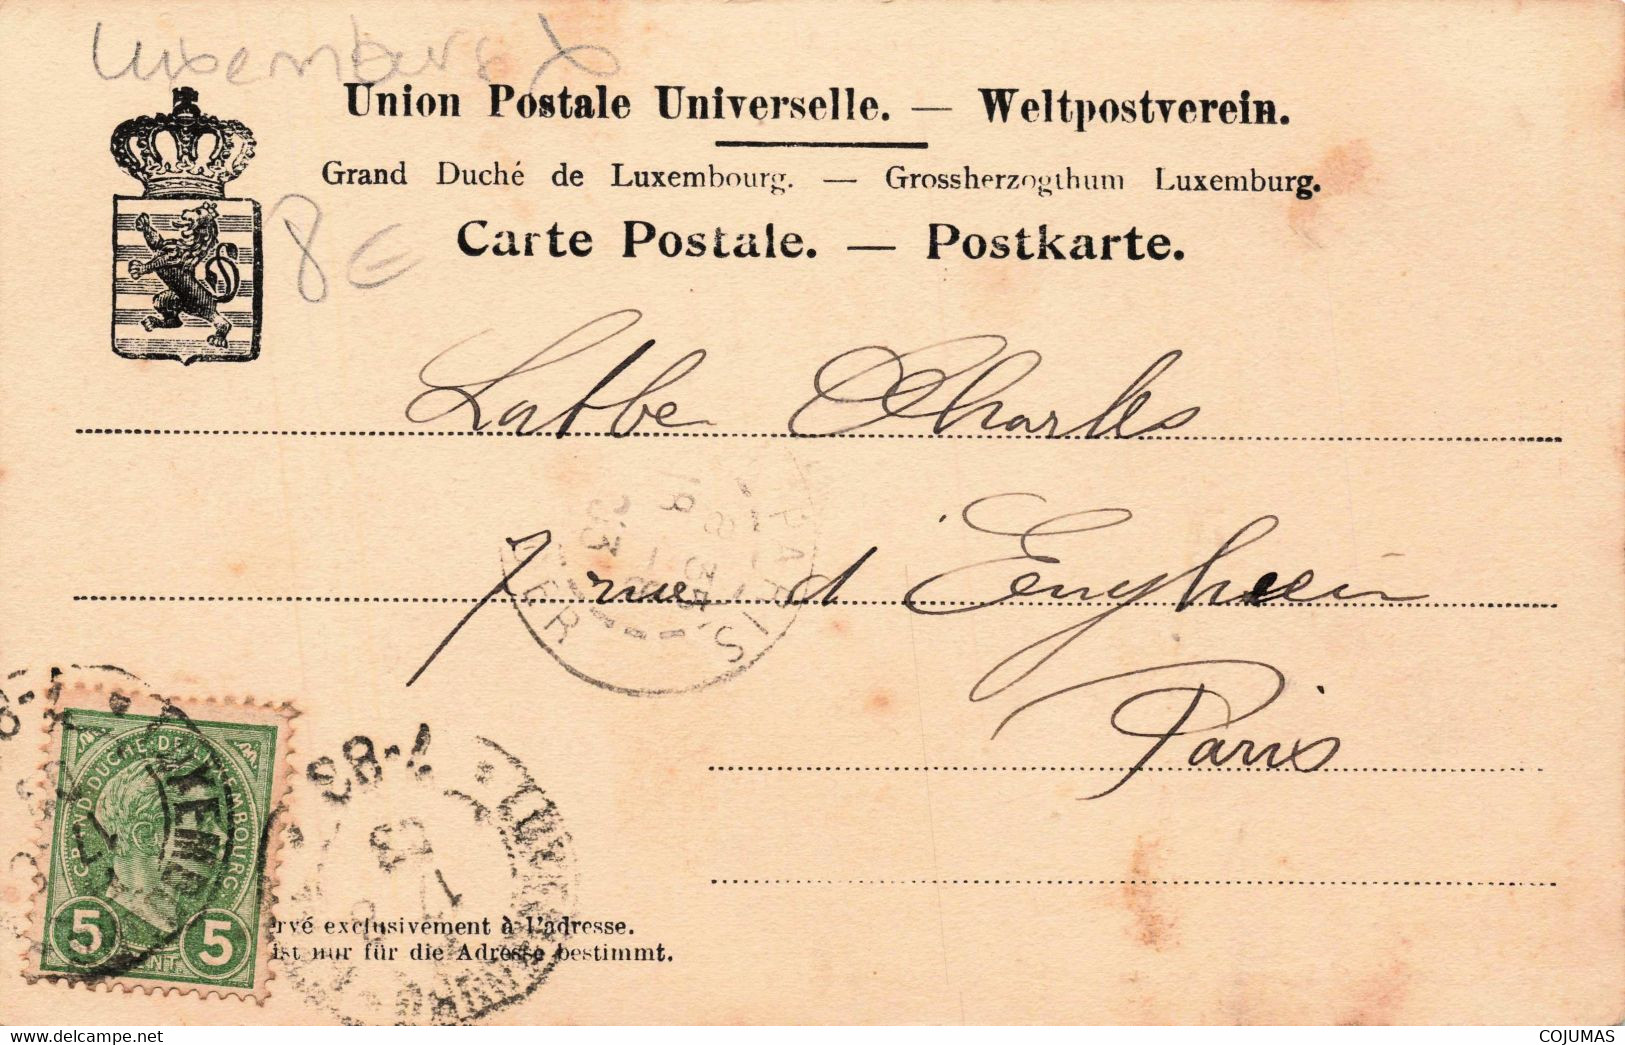 Luxemburg
Union Postale Universelle. — Weltpostverein.
Grand Duché de Luxembourg. — Grossherzogthum Luxemburg.
8€
Carte Postale. — Postkarte.
Labbe Charles
7 rue d'Enghein
Paris
PARIS
GRAND DUCHÉ DE LUXEMBOURG
5 5
rvé exclusivement à l'adresse.
ist nur für die Adresse bestimmt.
COJUMAS